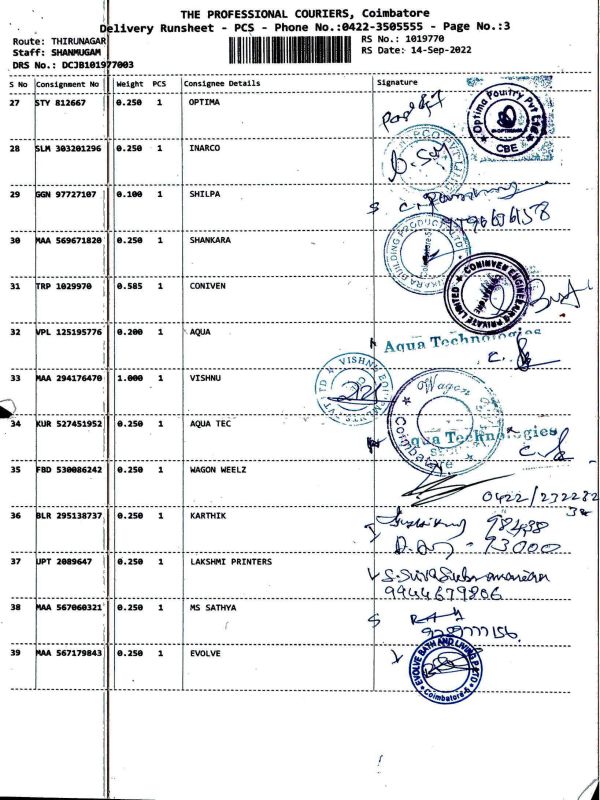 THE PROFESSIONAL COURIERS, Coimbatore
Delivery Runsheet - PCS - Phone No.:0422-3505555 - Page No.:3
Route: THIRUNAGAR RS No.: 1019770
Staff: SHANMUGAM RS Date: 14-Sep-2022
DRS No.: DCJB101977003
S No Consignment No Weight PCS Consignee Details Signature
27 STY 812667 0.250 1 OPTIMA
Optima Poultry Pvt Ltd
CBE
28 SLM 303201296 0.250 1 INARCO
29 GGN 97727107 0.100 1 SHILPA
30 MAA 569671820 0.250 1 SHANKARA
BUILDING PRODUCTS LTD
31 TRP 1029970 0.585 1 CONIVEN
CONINVEN ENGINEERING PRIVATE LIMITED
32 VPL 125195776 0.200 1 AQUA
Aqua Technologies
33 MAA 294176470 1.000 1 VISHNU
VISHNU
Wagon
Coimbatore
34 KUR 527451952 0.250 1 AQUA TEC
Aqua Technologies
35 FBD 530086242 0.250 1 WAGON WEELZ
0422/232282
36 BLR 295138737 0.250 1 KARTHIK
93000
37 UPT 2089647 0.250 1 LAKSHMI PRINTERS
S. Siva Subramanian
9944679806
38 MAA 567060321 0.250 1 MS SATHYA
39 MAA 567179843 0.250 1 EVOLVE
EVOLVE BATH AND LIVING P LTD
Coimbatore-6